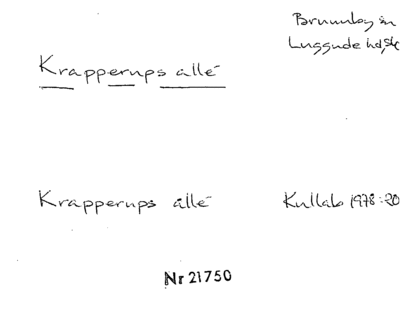 Brunnby sn
Luggude hd, Sk
Krapperups allé
Krapperups allé
Kullabo 1978:20
Nr 21750